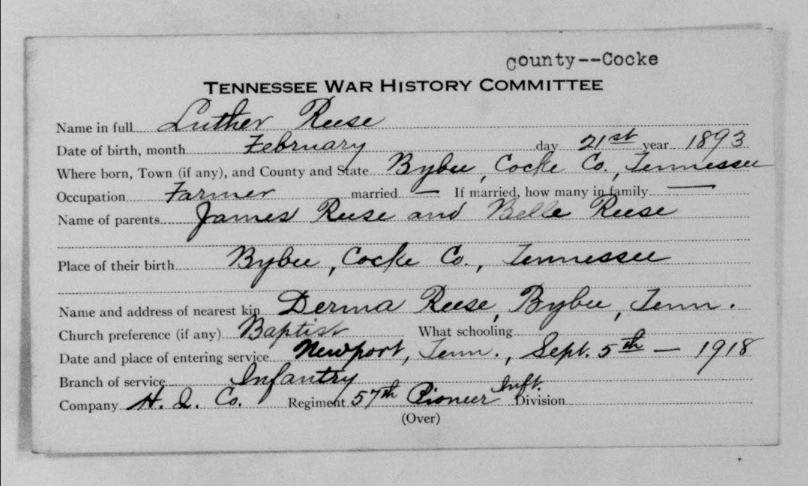 County--Cocke
TENNESSEE WAR HISTORY COMMITTEE
Name in full Luther Reese
Date of birth, month February day 21st year 1893
Where born, Town (if any), and County and State Bybee, Cocke Co., Tennessee
Occupation Farmer married — If married, how many in family —
Name of parents James Reese and Belle Reese
Place of their birth Bybee, Cocke Co., Tennessee
Name and address of nearest kin Derma Reese, Bybee, Tenn.
Church preference (if any) Baptist What schooling
Date and place of entering service Newport, Tenn., Sept. 5th — 1918
Branch of service Infantry
Company H. Q. Co. Regiment 57th Pioneer Inft. Division
(Over)